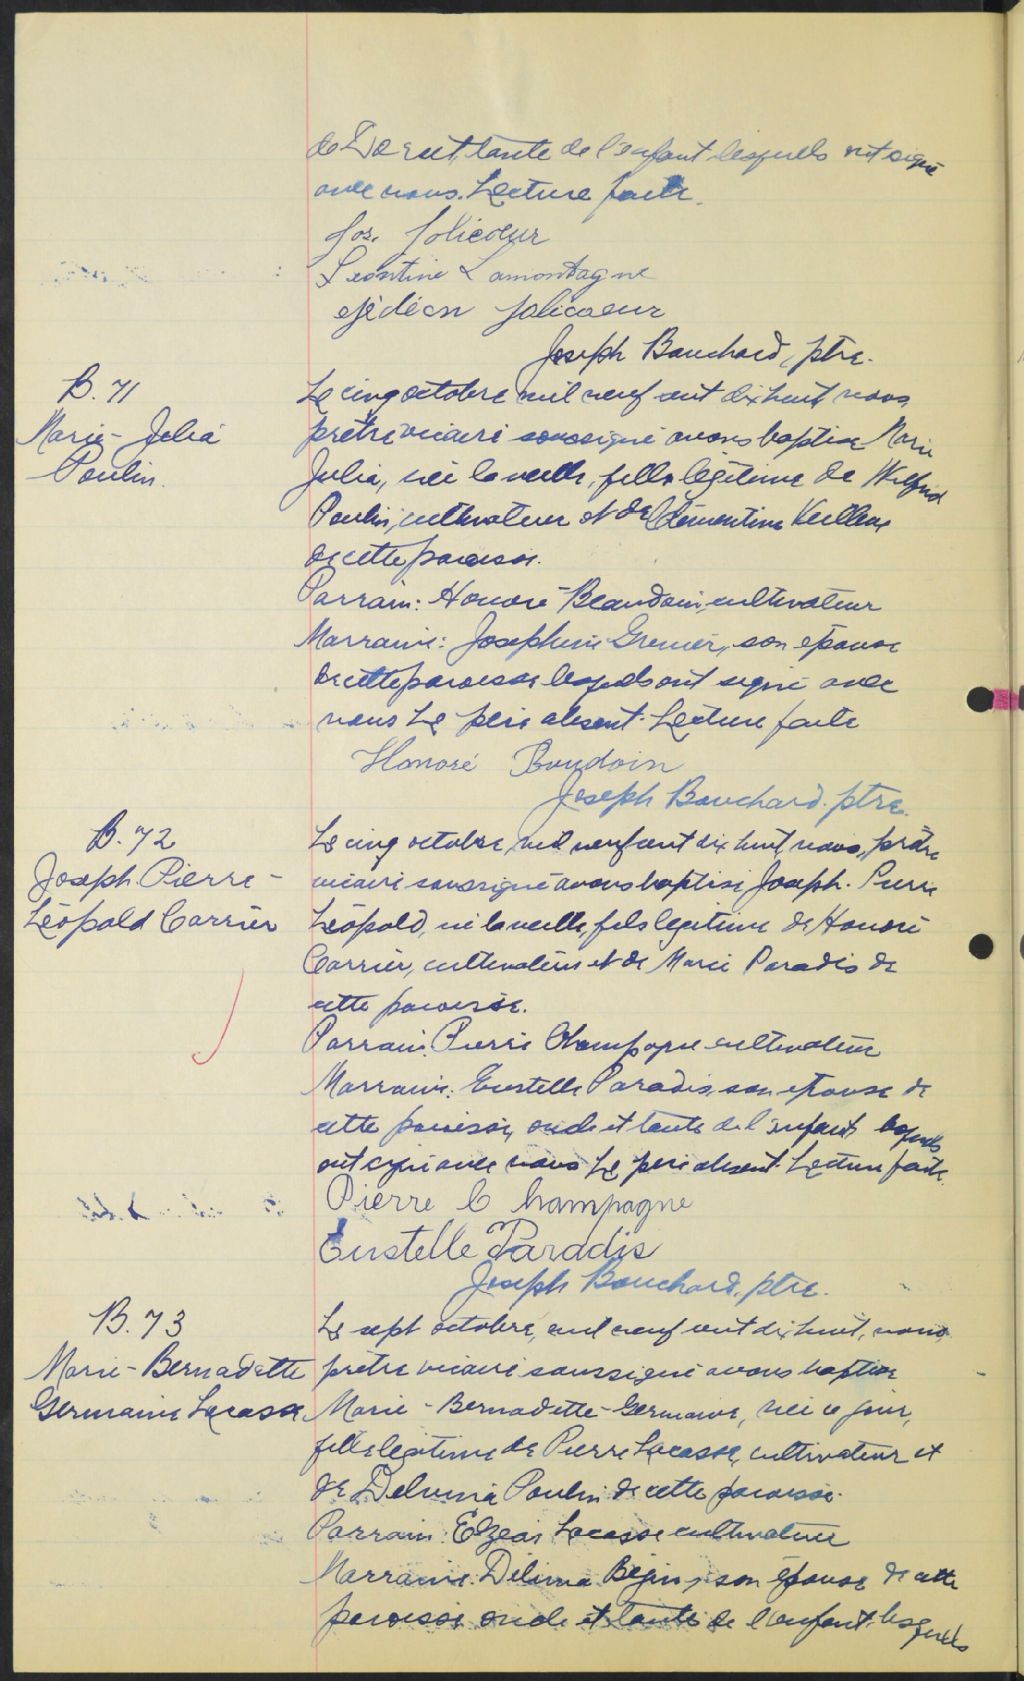 de Dorset, tante de l'enfant lesquels ont signé
avec nous. Lecture faite.
Jos. Jolicoeur
Léontine Lamontagne
Gédéon Jolicoeur
Joseph Bouchard, ptre.
B. 71
Marie-Julia
Poulin.
Le cinq octobre mil neuf cent dix huit nous
prêtre vicaire soussigné avons baptisé Marie
Julia, née la veille, fille légitime de Wilfrid
Poulin, cultivateur et de Clémentine Veilleux
de cette paroisse.
Parrain: Honoré Beaudoin, cultivateur
Marraine: Josephine Grenier, son épouse
de cette paroisse lesquels ont signé avec
nous Le père absent. Lecture faite
Honoré Boudoin
Joseph Bouchard. ptre.
B. 72
Joseph Pierre-
Léopold Carrier
Le cinq octobre, mil neuf cent dix huit, nous, prêtre
vicaire soussigné avons baptisé Joseph-Pierre
Léopold, né la veille, fils légitime de Honoré
Carrier, cultivateur et de Marie Paradis de
cette paroisse.
Parrain: Pierre Champagne cultivateur
Marraine: Eustelle Paradis, son épouse de
cette paroisse, oncle et tante de l'enfant lesquels
ont signé avec nous Le père absent. Lecture faite.
Pierre Champagne
Eustelle Paradis
Joseph Bouchard, ptre.
B. 73
Marie-Bernadette
Germaine Lacasse
Le sept octobre, mil neuf cent dix huit, nous,
prêtre vicaire soussigné avons baptisé
Marie-Bernadette-Germaine, née ce jour,
fille légitime de Pierre Lacasse, cultivateur et
de Delvina Poulin de cette paroisse.
Parrain: Elzéar Lacasse cultivateur
Marraine: Délima Bégin, son épouse de cette
paroisse oncle et tante de l'enfant lesquels